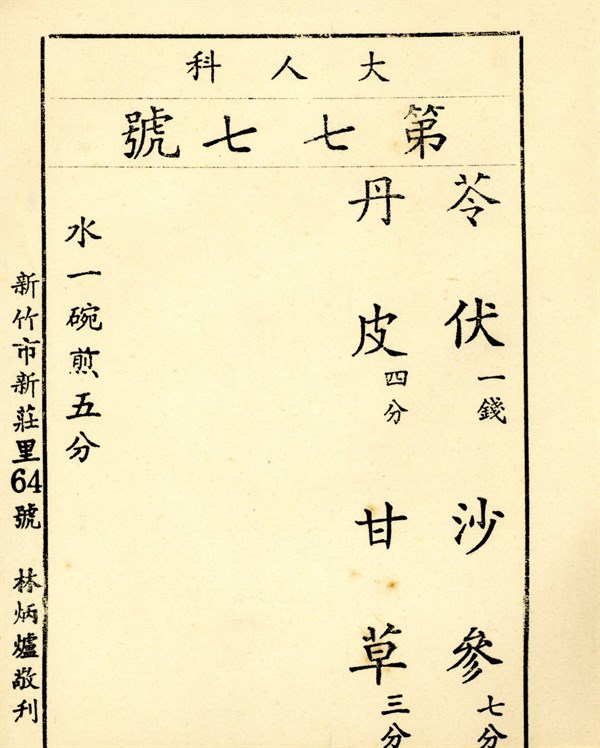 大人科
第七七號
苓伏一錢 沙參七分
丹皮四分 甘草三分
水一碗煎五分
新竹市新莊里64號 林炳爐敬刊